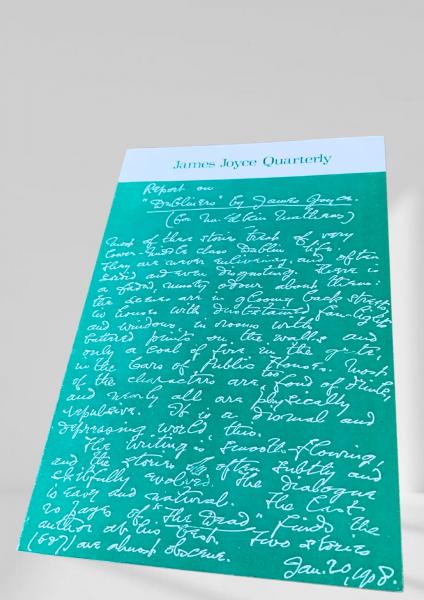 James Joyce Quarterly
Report on
"Dubliners" by James Joyce.
(for Mr. Elkin Mathews)
Most of these stories treat of very
lower-middle class Dublin life.
They are never enlivening, and often
sordid and even disgusting. There is
a faded, musty odour about them:
the scenes are in gloomy back streets,
in houses with dust-stained fan-lights
and windows, in rooms with
battered prints on the walls and
only a coal of fire in the grate,
in the bars of Public Houses. Most
of the characters are too fond of drink,
and nearly all are physically
repulsive. It is a dismal and
depressing world, this.
The writing is smooth-flowing,
and the stories are often subtly and
skilfully evolved. The dialogue
is easy and natural. The last
20 pages of "The Dead" finds the
author at his best. Two stories
(6 & 7) are almost obscene.
Jan. 20, 1908.